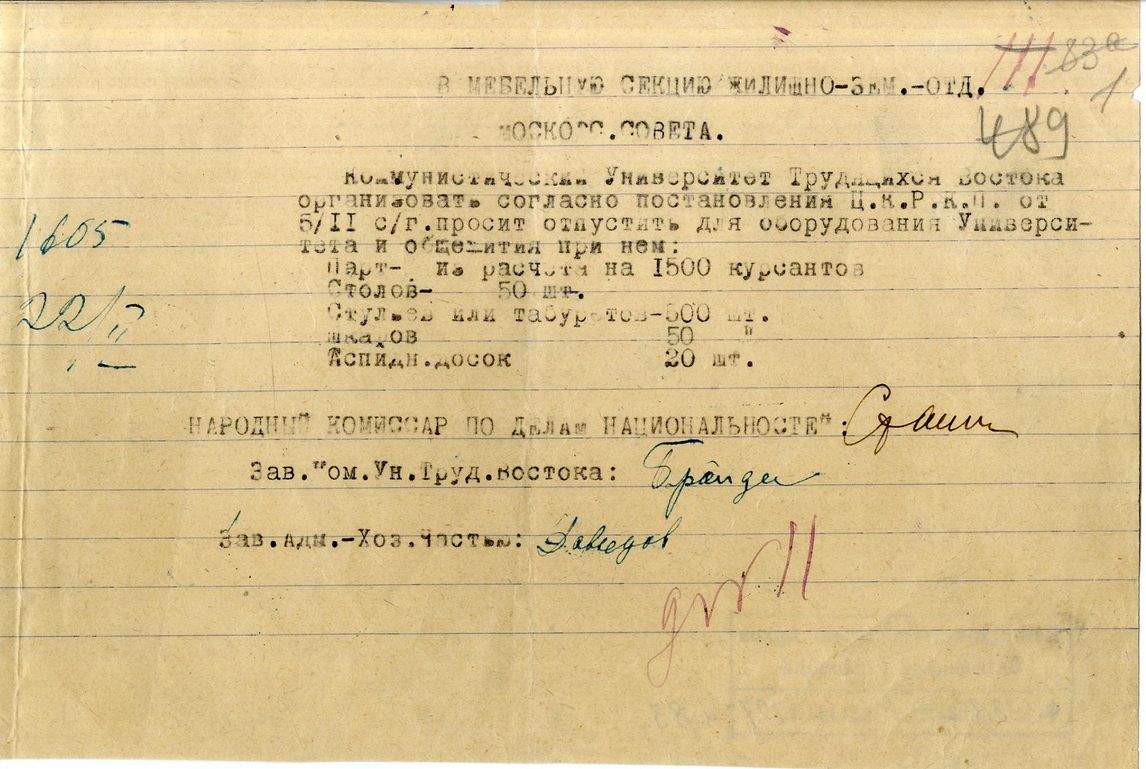 83а
1
489
В МЕБЕЛЬНУЮ СЕКЦИЮ ЖИЛИЩНО-ЗЕМ.-ОТД.
МОСКОВС.СОВЕТА.
Коммунистический Университет Трудящихся Востока
организовать согласно постановления Ц.К.Р.К.П. от
5/II с/г.просит отпустить для оборудования Универси-
тета и общежития при нем:
Парт- из расчета на 1500 курсантов
Столов- 50 шт.
Стульев или табуретов-500 шт.
шкафов 50 "
Аспидн.досок 20 шт.
1605
22/II
НАРОДНЫЙ КОМИССАР ПО ДЕЛАМ НАЦИОНАЛЬНОСТЕЙ: Сталин
Зав.Ком.Ун.Труд.Востока: Бройдо
Зав.Адм.-Хоз.Частью: Давыдов